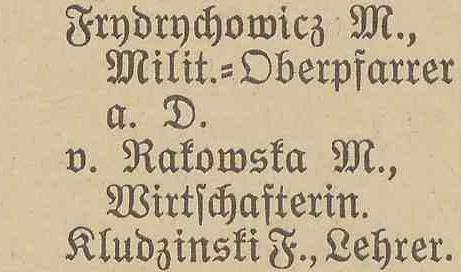 Frydrychowicz M.,
Milit.=Oberpfarrer
a. D.
v. Rakowska M.,
Wirtſchafterin.
Kludzinski F., Lehrer.